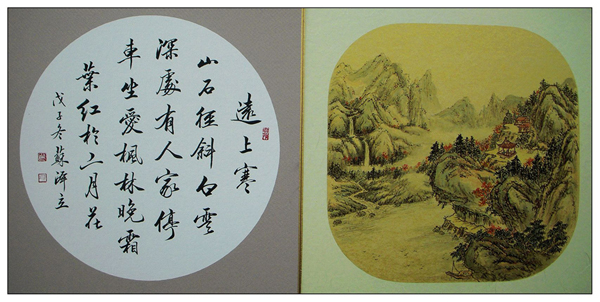 遠上寒
山石徑斜白雲
深處有人家停
車坐愛楓林晚霜
葉紅於二月花
戊子冬蘇澤立